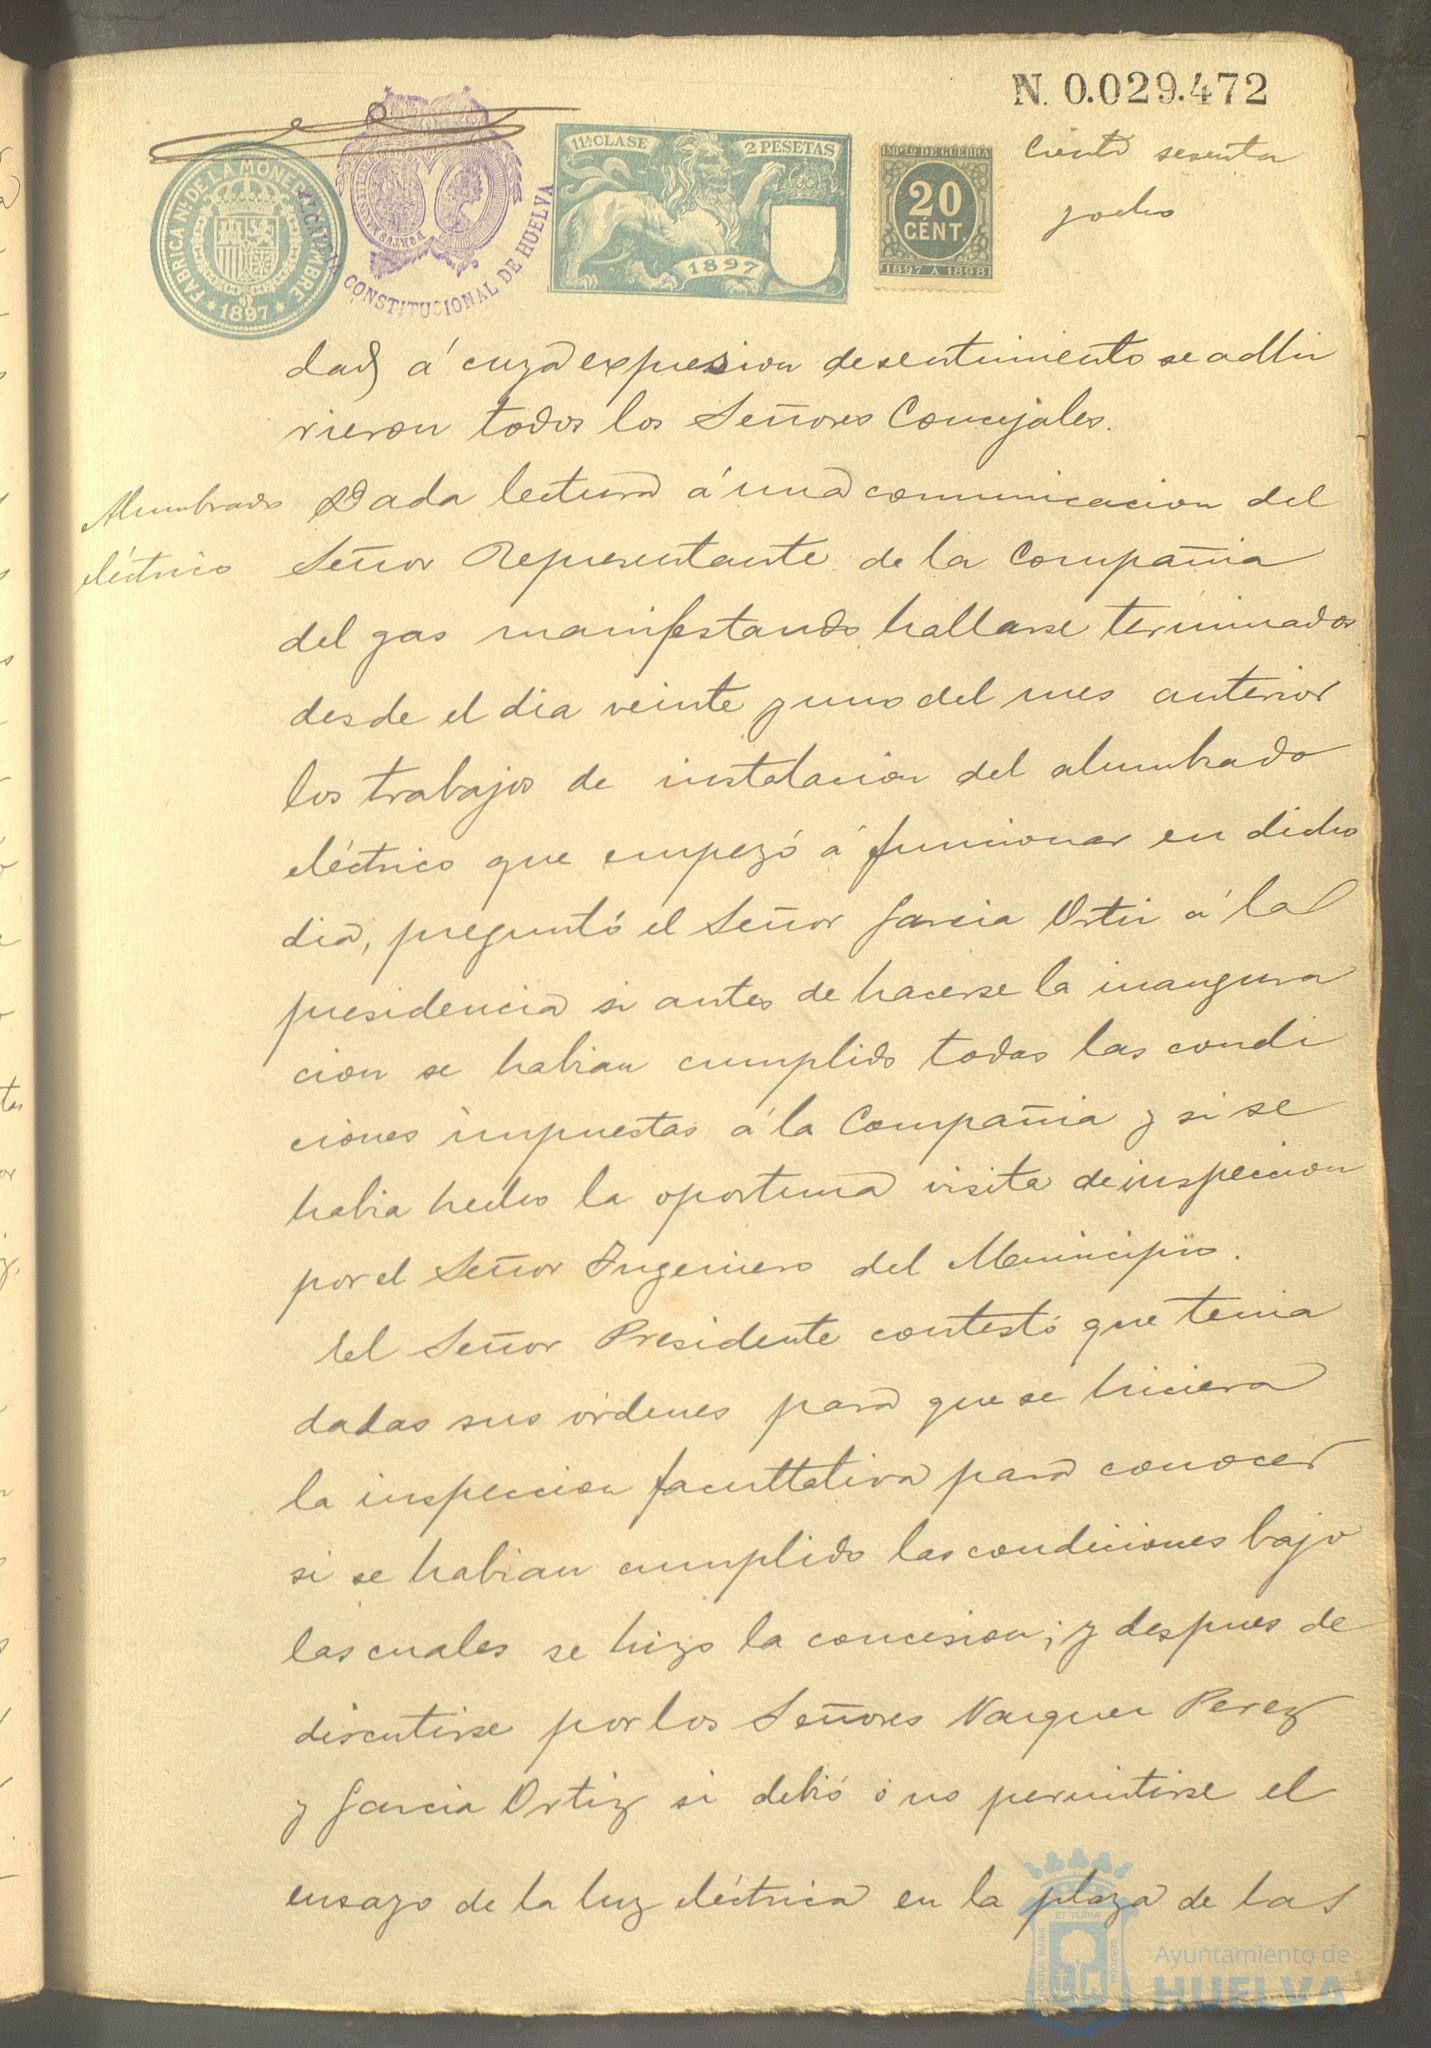 N. 0.029.472
Ciento sesenta
y ocho
11ª CLASE 2 PESETAS
1897
IMPTO DE GUERRA
20
CÉNT.
1897 A 1898
FABRICA Nl DE LA MONEDA Y TIMBRE
* 1897 *
ALCALDIA CONSTITUCIONAL DE HUELVA
dad á cuya expresion de sentimiento se adhi
rieron todos los Señores Concejales.
Alumbrado
eléctrico
Dada lectura á una comunicacion del
Señor Representante de la Compañia
del gas manifestando hallarse terminados
desde el dia veinte y uno del mes anterior
los trabajos de instalacion del alumbrado
eléctrico que empezó á funcionar en dicho
dia, preguntó el Señor Garcia Ortiz á la
presidencia si antes de hacerse la inaugura
cion se habian cumplido todas las condi
ciones impuestas á la Compañia y si se
habia hecho la oportuna visita de inspeccion
por el Señor Ingeniero del Municipio.
El Señor Presidente contestó que tenia
dadas sus órdenes para que se hiciera
la inspeccion facultativa para conocer
si se habian cumplido las condiciones bajo
las cuales se hizo la concesion; y despues de
discutirse por los Señores Vazquez Perez
y Garcia Ortiz si debió ó no permitirse el
ensayo de la luz eléctrica en la plaza de las
Ayuntamiento de
HUELVA